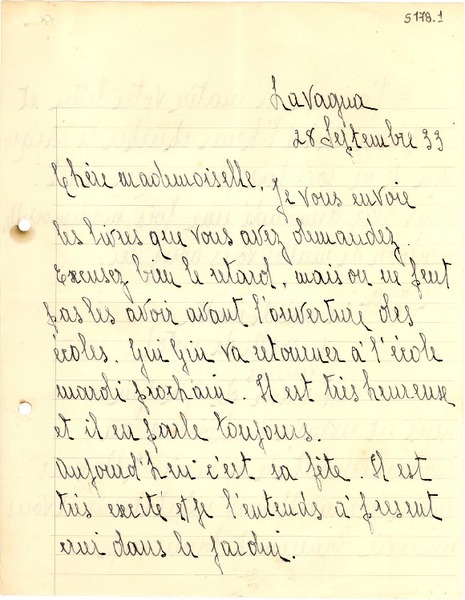 5178.1
Lavagna
28 Septembre 33
Chère mademoiselle, Je vous envoie
les livres que vous avez demandez.
Excusez bien le retard, mais on ne peut
pas les avoir avant l'ouverture des
écoles. Gin Gin va retourner à l'école
mardi prochain. Il est très heureuse
et il en parle toujours.
Aujourd'hui c'est sa fête. Il est
très excité et je l'entends à present
crui dans le jardin.